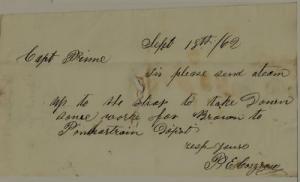 Sept 18th /62
Capt Winne
Sir please send a team
up to the shop to take Down
some works for Brown to
Pontchartrain Depot
resp yours
P. E. Cosgrove